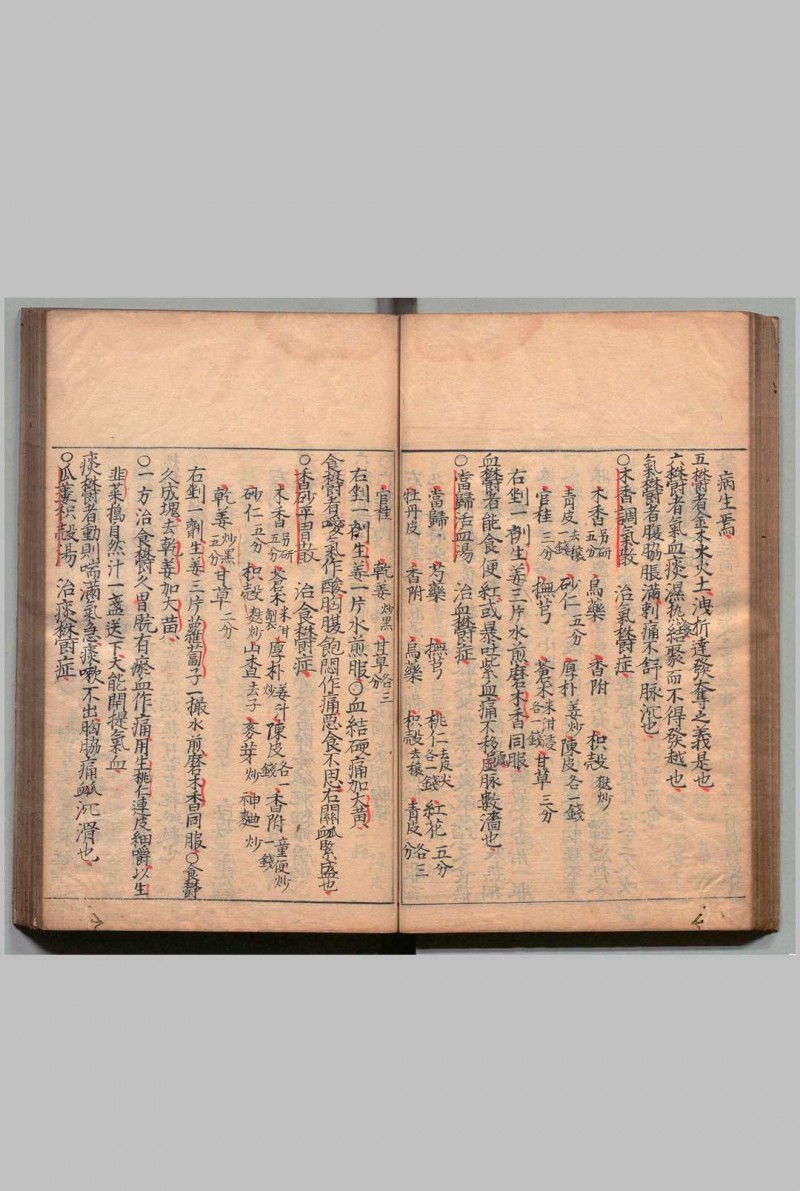 病生焉
五欝者金木水火土洩折達發奪之義是也
六欝者氣血痰濕熱食結聚而不得發越也
氣欝者腹脇脹滿刺痛不舒脉沉也
〇木香調氣散 治氣欝症
木香另研五分 烏藥 香附 枳殼麩炒
青皮去穰一錢 砂仁五分 厚朴姜炒 陳皮各一錢
官桂三分 撫芎 蒼朮米泔浸各一錢 甘草三分
右剉一劑生姜三片水煎磨木香同服
血欝者能食便紅或暴吐紫血痛不移處脉數濇也
〇當歸活血湯 治血欝症
當歸 芍藥 撫芎 桃仁去皮尖各一錢 紅花五分
牡丹皮 香附 烏藥 枳殼去穰 青皮各三分
官桂 乾姜炒黑 甘草各三分
右剉一劑生姜一片水煎服〇血結硬痛加大黃
食欝者噯氣作酸胸腹飽悶作痛惡食不思右關脉緊盛也
〇香砂平胃散 治食欝症
木香另研五分 蒼朮米泔製 厚朴姜汁炒 陳皮各一錢 香附童便炒一錢
砂仁五分 枳殼麩炒 山查去子 麥芽炒 神麯炒
乾姜炒黑五分 甘草二分
右剉一劑生姜三片蘿蔔子一撮水煎磨木香同服〇食欝
久成塊去乾姜加大黃
〇一方治食欝久胃脘有瘀血作痛用生桃仁連皮細嚼以生
韭菜搗自然汁一盞送下大能開提氣血
痰欝者動則喘滿氣急痰嗽不出胸脇痛脉沉滑也
〇瓜蔞枳殼湯 治痰欝症